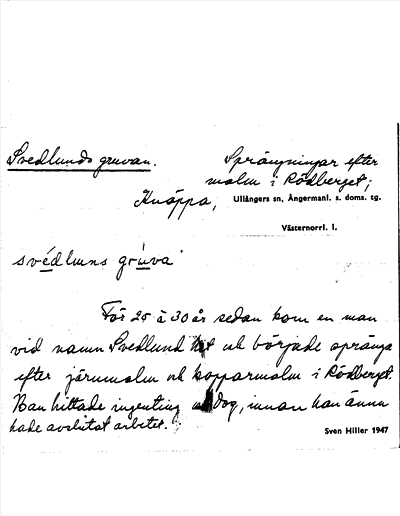 Svedlunds gruvan.
Sprängningar efter
malm i Rödberget;
Knäppa,
Ullångers sn, Ångermanl. s. doms. tg.
Västernorrl. l.
svédluns grùva
För 25 à 30 år sedan kom en man
vid namn Svedlund hit och började spränga
efter järnmalm och kopparmalm i Rödberget.
Han hittade ingenting och dog, innan han ännu
hade avslutat arbetet.
Sven Hiller 1947